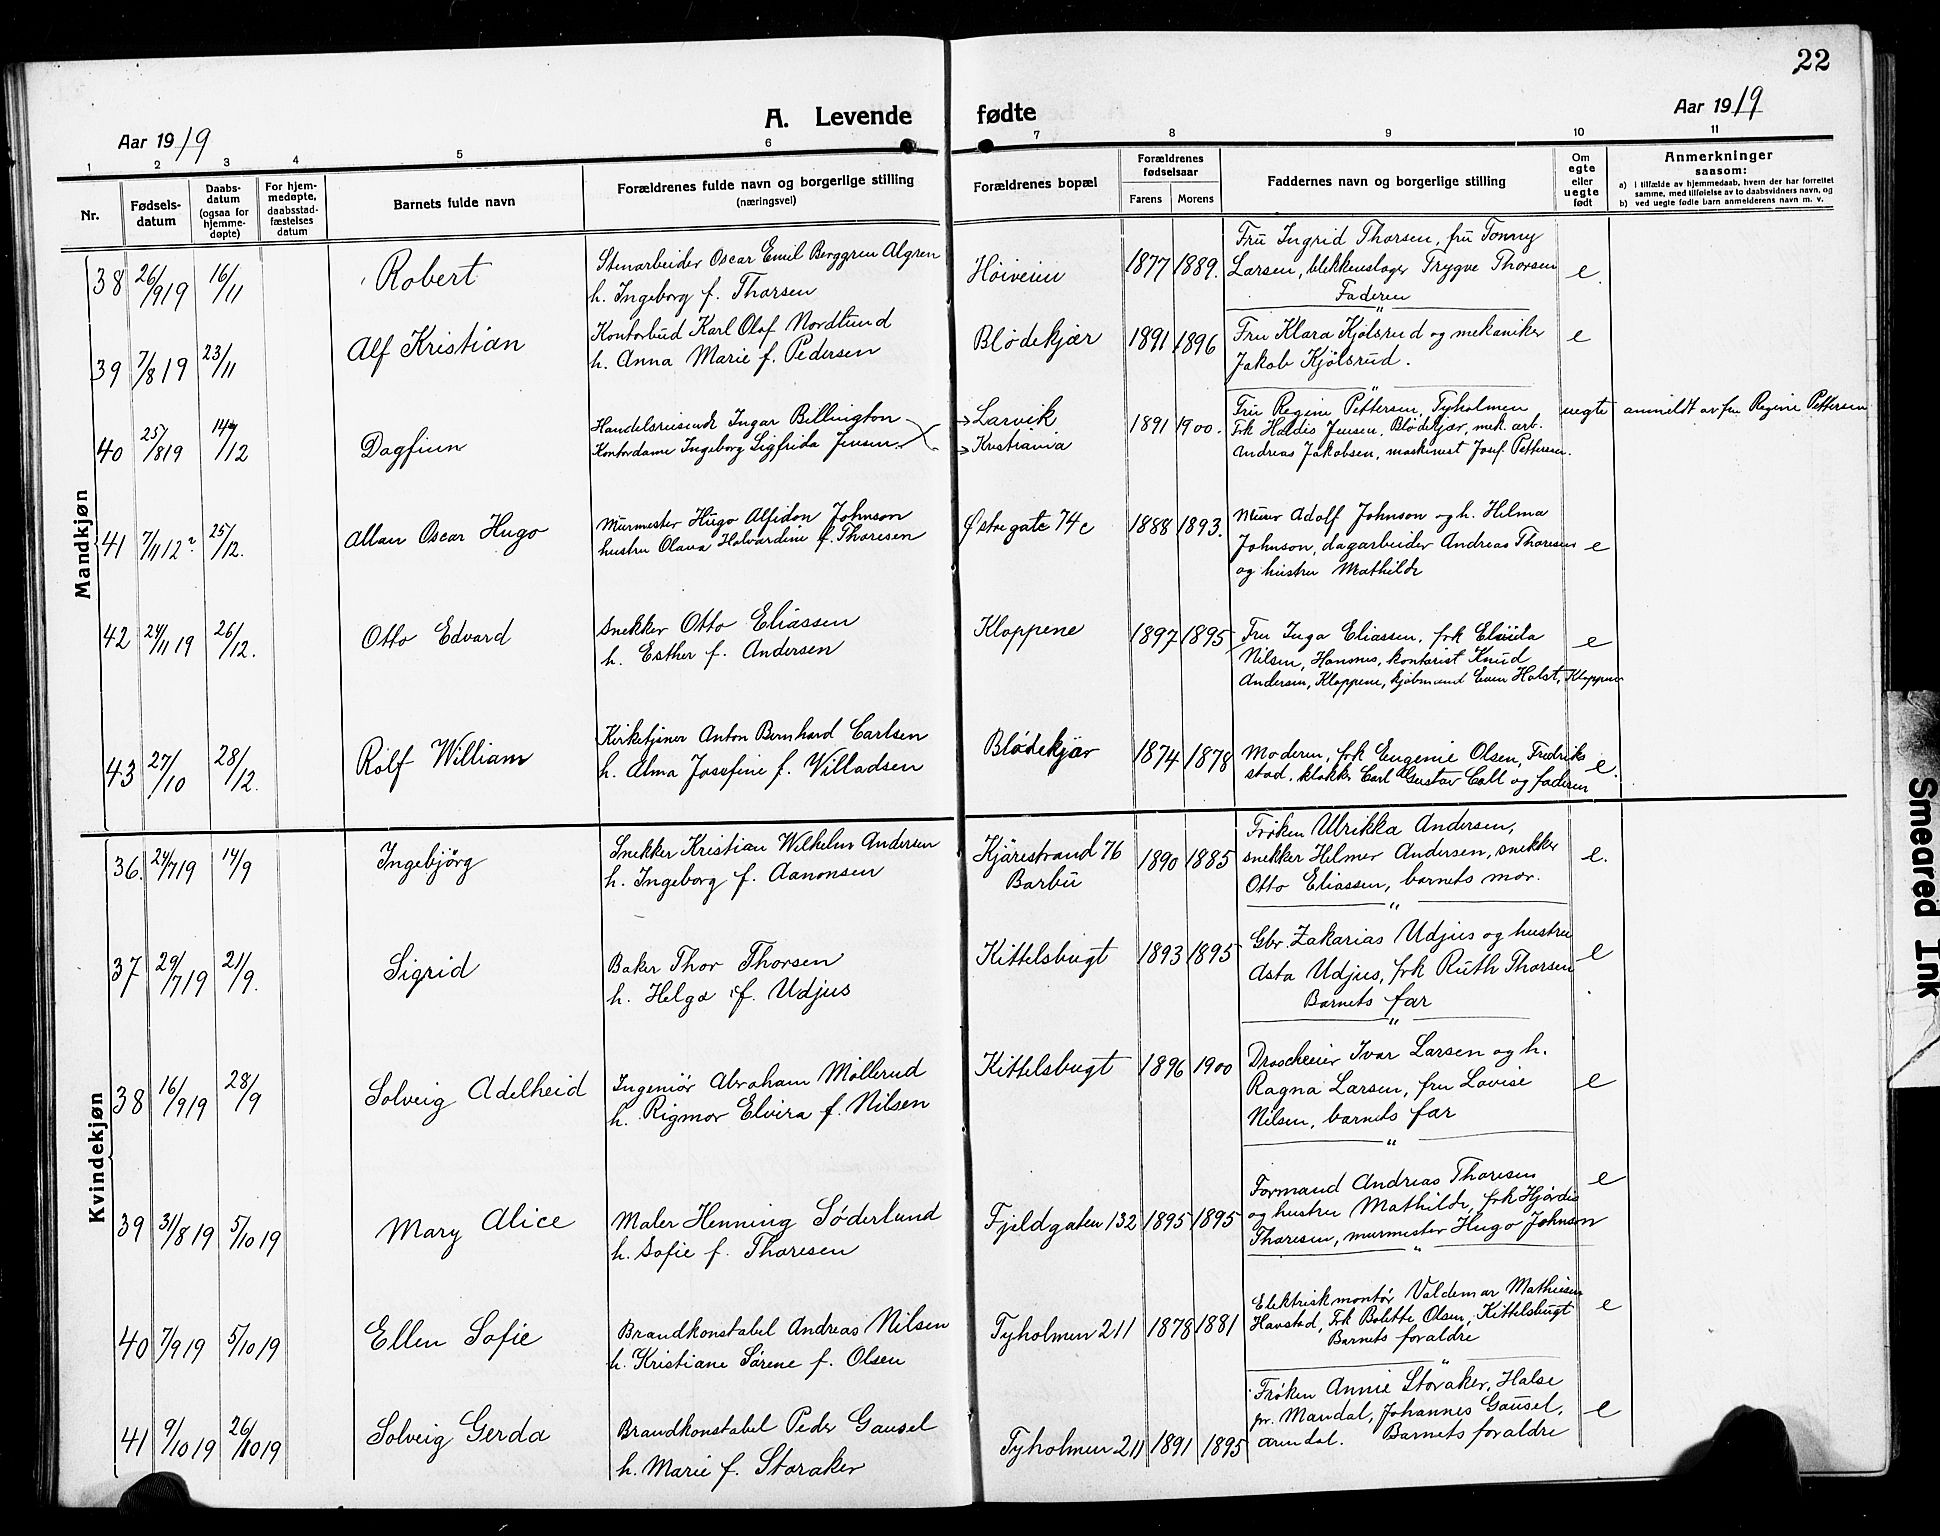 22
A. Levende fødte
Aar 1919
Aar 1919
1 2 3 4 5 6 7 8 9 10 11
Nr.
Fødsels-
datum
Daabs-
datum
(ogsaa for
hjemme-
døpte)
For hjem-
medøpte,
daabsstad-
fæstelses
datum
Barnets fulde navn
Forældrenes fulde navn og borgerlige stilling
(næringsvei)
Forældrenes bopæl
Forældrenes
fødselsaar
Farens Morens
Faddernes navn og borgerlige stilling
Om
egte
eller
uegte
født
Anmerkninger
saasom:
a) i tilfælde av hjemmedaab, hvem der har forrettet
samme, med tilføielse av to daabsvidners navn, og
b) ved uegte fødte barn anmelderens navn m. v.
Mandkjøn
38 26/9 19 16/11 Robert
Stenarbeider Oscar Emil Berggren Algren
h. Ingeborg f. Thorsen
Höiveien 1877 1889.
Fru Ingrid Thorsen, fru Tonny
Larsen, blikkenslager Trygve Thorsen
Faderen
e.
39 7/8 19 23/11 Alf Kristian
Kontorbud Karl Olaf Nordlund
h. Anna Marie f. Pedersen
Blödekjær 1891 1896
Fru Klara Kjölsrud og mekaniker
Jakob Kjölsrud.
e
40 25/8 19 14/12 Dagfinn
Handelsreisende Ingar Billington
Kontordame Ingeborg Sigfrida Jensen
Larvik
Kristiania
1891 1900.
Fru Regine Pettersen, Tyholmen
Frk Haldis Jensen, Blödekjær, mek. arb.
Andreas Jakobsen, maskinist Josef Pettersen.
uegte anmeldt av fru Regine Pettersen
41 7/11 12 25/12. Allan Oscar Hugo
Murmester Hugo Alfidon Johnson
hustru Olava Halvardine f. Thoresen
Østregate 74c 1888 1893.
Murer Adolf Johnson og h. Helma
Johnson, dagarbeider Andreas Thoresen
og hustru Mathilde
e
42 24/11 19 26/12. Otto Edvard
Snekker Otto Eliassen
h. Esther f. Andersen
Kloppene 1897 1895
Fru Inga Eliassen, frk
Nilsen, kontorist Knud
Andersen, Kloppene, kjöbmand Even Holst, Kloppene
e
43 27/10 28/12. Rolf William
Kirketjener Anton Bernhard Carlsen
h. Alma Josefine f. Willadsen
Blödekjær 1874 1878
Moderen, frk Eugenie Olsen, Fredrik-
stad, klokker Carl Gustav Coll og faderen
e.
Kvindekjøn
36. 24/7 19 14/9 Ingebjörg
Snekker Kristian Wilhelm Andersen
h. Ingeborg f. Aanonsen
Kjärestrand 76
Barbu
1890 1885
Fröken Ulrikka Andersen,
snekker Helmer Andersen, snekker
Otto Eliassen, barnets mor.
e.
37 29/7 19 21/9. Sigrid
Baker Thor Thorsen
h. Helga f. Udjus
Kittelsbugt 1893 1895
Gbr. Zakarias Udjus og hustru
Asta Udjus, frk Ruth Thorsen
Barnets far
e
38 16/9 19 28/9 Solveig Adelheid
Ingeniør Abraham Möllerud
h. Rigmor Elvira f. Nilsen
Kittelsbugt 1896 1900
Drascheeier Ivar Larsen og h.
Ragna Larsen, fru Lovise
Nilsen, barnets far
e
39 31/8 19 5/10 19 Mary Alice
Maler Henning Söderlund
h. Sofie f. Thoresen
Fjeldgaten 132 1895 1895
Formand Andreas Thoresen
og hustru Mathilde, frk Hjördis
Thoresen, murmester Hugo Johnson
e
40 7/9 19 5/10 19 Ellen Sofie
Brandkonstabel Andreas Nilsen
h. Kristiane Sörene f. Olsen
Tyholmen 211 1878 1881
Elektriskmontör Valdemar Mathiesen
Havstad, Frk Bolette Olsen, Kittelsbugt
Barnets foraldre
e
41 9/10 19 26/10 19 Solveig Gerda
Brandkonstabel Peder Gausel
h. Marie f. Storaker
Tyholmen 211 1891 1895
Fröken Annie Storaker, Halse
pr. Mandal, Johannes Gausel,
Arendal. Barnets foraldre
e
Smeared Ink